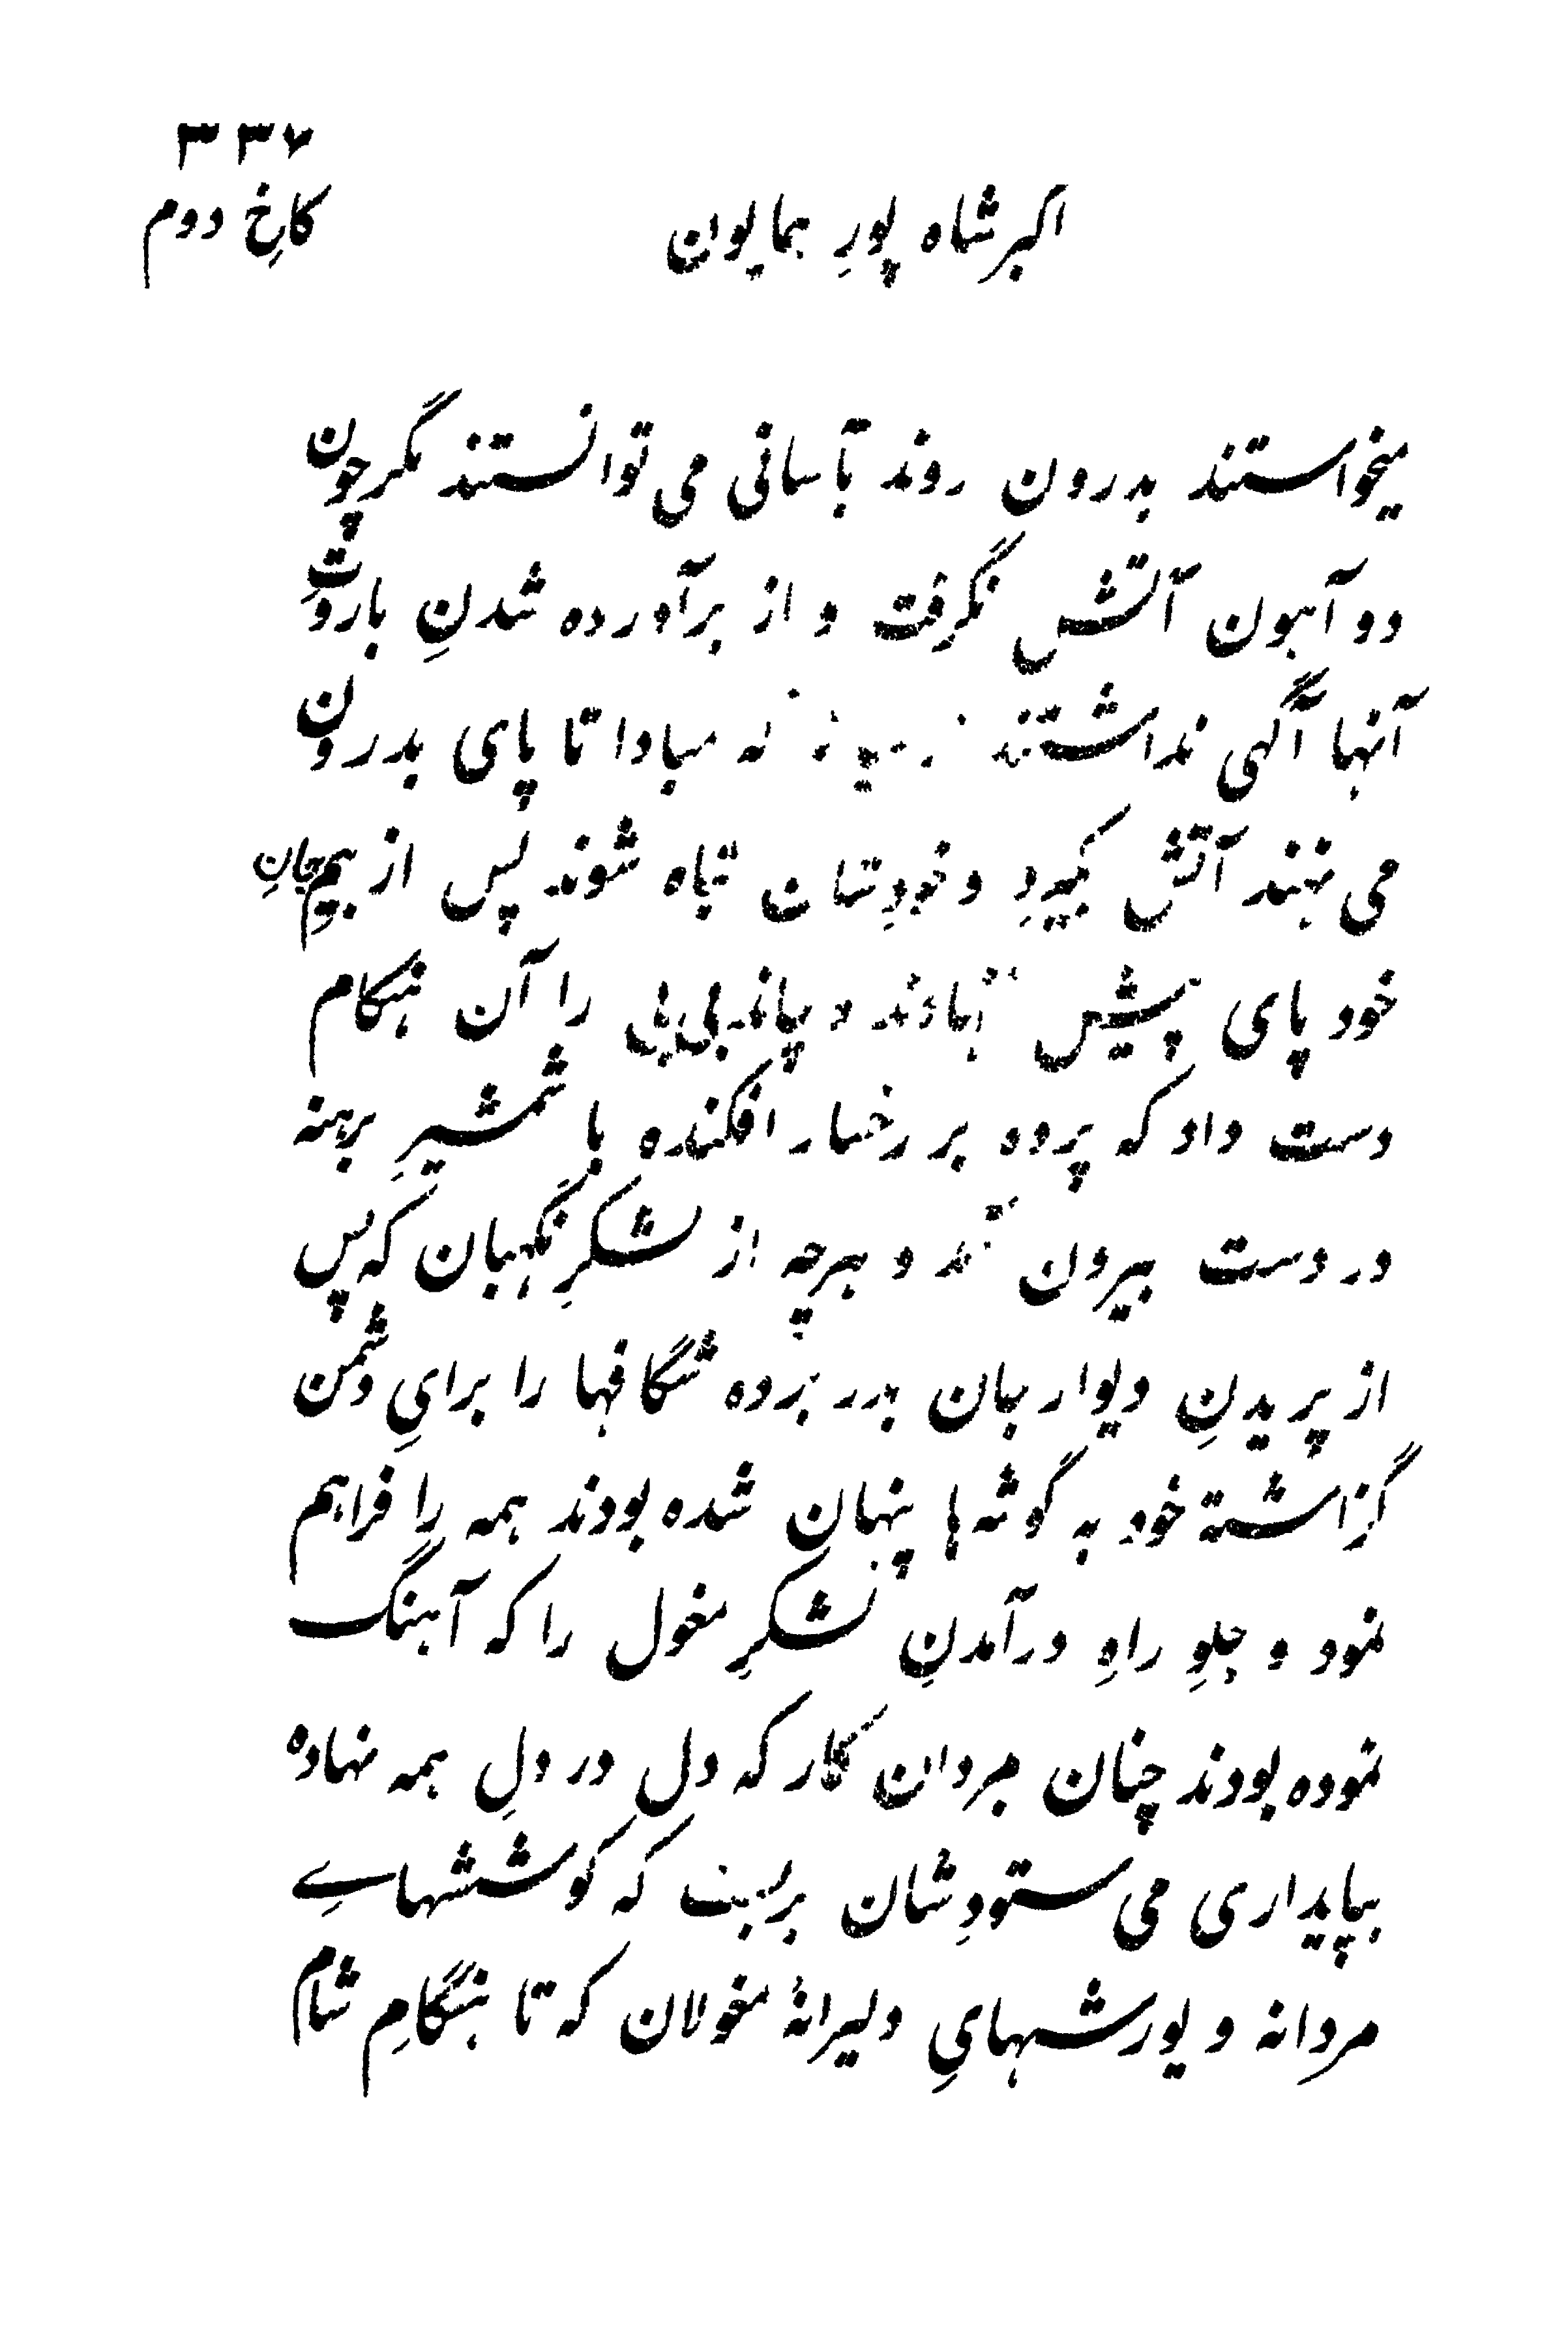 ۳۳۶
کاخِ دوم
اکبرشاه پورِ همایون
میخواستند بدرون روند بآسانی می توانستند مگر چون
دو آهون آتش نگرفت و از برآورده شدنِ باروتِ
آنها آگهی نداشتند که مبادا تا پای بدرون
می نهند آتش بگیرد و خودشان تباه شوند پس از بیمِ جانِ
خود پای پیش نهادند و چاند بی بی را آن هنگام
دست داد که پرده بر رخسار افکنده با شمشیرِ برهنه
در دست بیرون و هرچه از لشکرِ نگهبان که پس
از پریدنِ دیوار بجان بدر برده شگافها را برایِ دشمن
گزاشته خود به گوشه ها پنهان شده بودند همه را فراهم
نمود و جلوِ راهِ درآمدنِ لشکرِ مغول را که آهنگ
نموده بودند چنان مردان کار که دل در دلِ همه نهاده
بپایداری می ستودشان بربست که کوششهایِ
مردانه و یورشهایِ دلیرانهٔ مغولان که تا هنگامِ شام